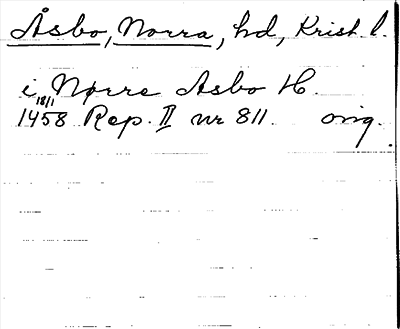 Åsbo, Norra, hd, Krist. l.
i Nørre Asbo H.
18/1
1458 Rep. II nr 811. orig.